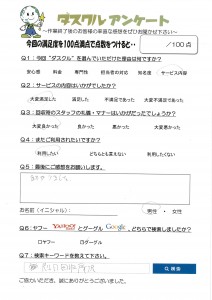 ダスクル アンケート
～作業終了後のお客様の率直な感想をぜひお聞かせ下さい～
今回の満足度を100点満点で点数をつけると‥
／100点
Q1：今回“ダスクル”を選んでいただけた理由は何ですか？
安心感　料金　専門性　担当者の対応　知名度　サービス内容
Q2：サービスの内容はいかがでしたか？
大変満足した　満足した　不満足であった　大変不満であった
Q3：回収時のスタッフの礼儀・マナーはいかがだったでしょうか？
大変良かった　良かった　悪かった　大変悪かった
Q4：またご利用されたいですか？
利用したい　どちらとも言えない　利用したくない
Q5：最後にご感想をお願いします。
お名前（イニシャル）：
男性・女性
Q6：ヤフー YAHOO! とグーグル Google、どちらで検索しましたか？
□ヤフー　□グーグル
Q7：検索キーワードを教えて下さい。
検索
ご協力いただき、誠にありがとうございました。